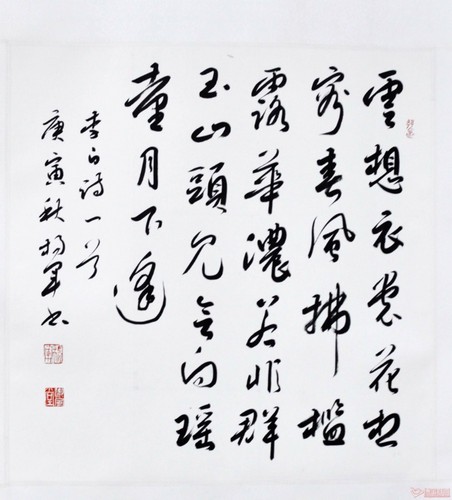 雲想衣裳花想
容春風拂檻
露華濃若非群
玉山頭見會向瑶
臺月下逢
李白詩一首
庚寅秋杨军书